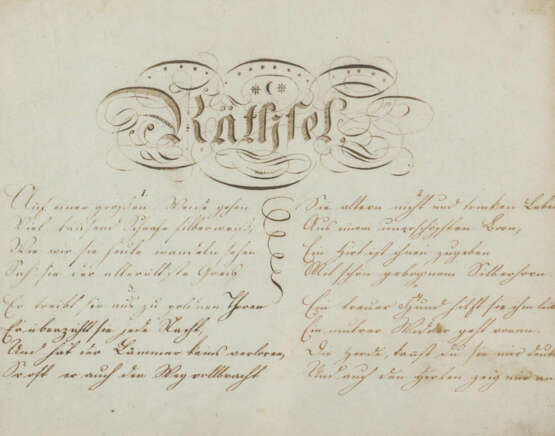 Räthsel.
1.
Auf einer großen Weide gehen
Viel tausend Schafe silberweis,
Wie wir sie heute wandeln sehen
Sah sie der allerältste Greis
Er treibt sie aus zu goldnen Thoren
Er überzählt sie jede Nacht,
Und hat der Lämmer keins verloren,
So oft er auch den Weg vollbracht
Sie altern nicht und trinken Leben
Aus einem unerschöpften Born,
Ein Hirt ist ihnen zugegeben
Mit schön gebognem Silberhorn
Ein treuer Hund hilft sie ihm
Ein muntrer Widder geht voran.
Die Herde, kannst du sie mir deut
Und auch den Hirten zeig mir an